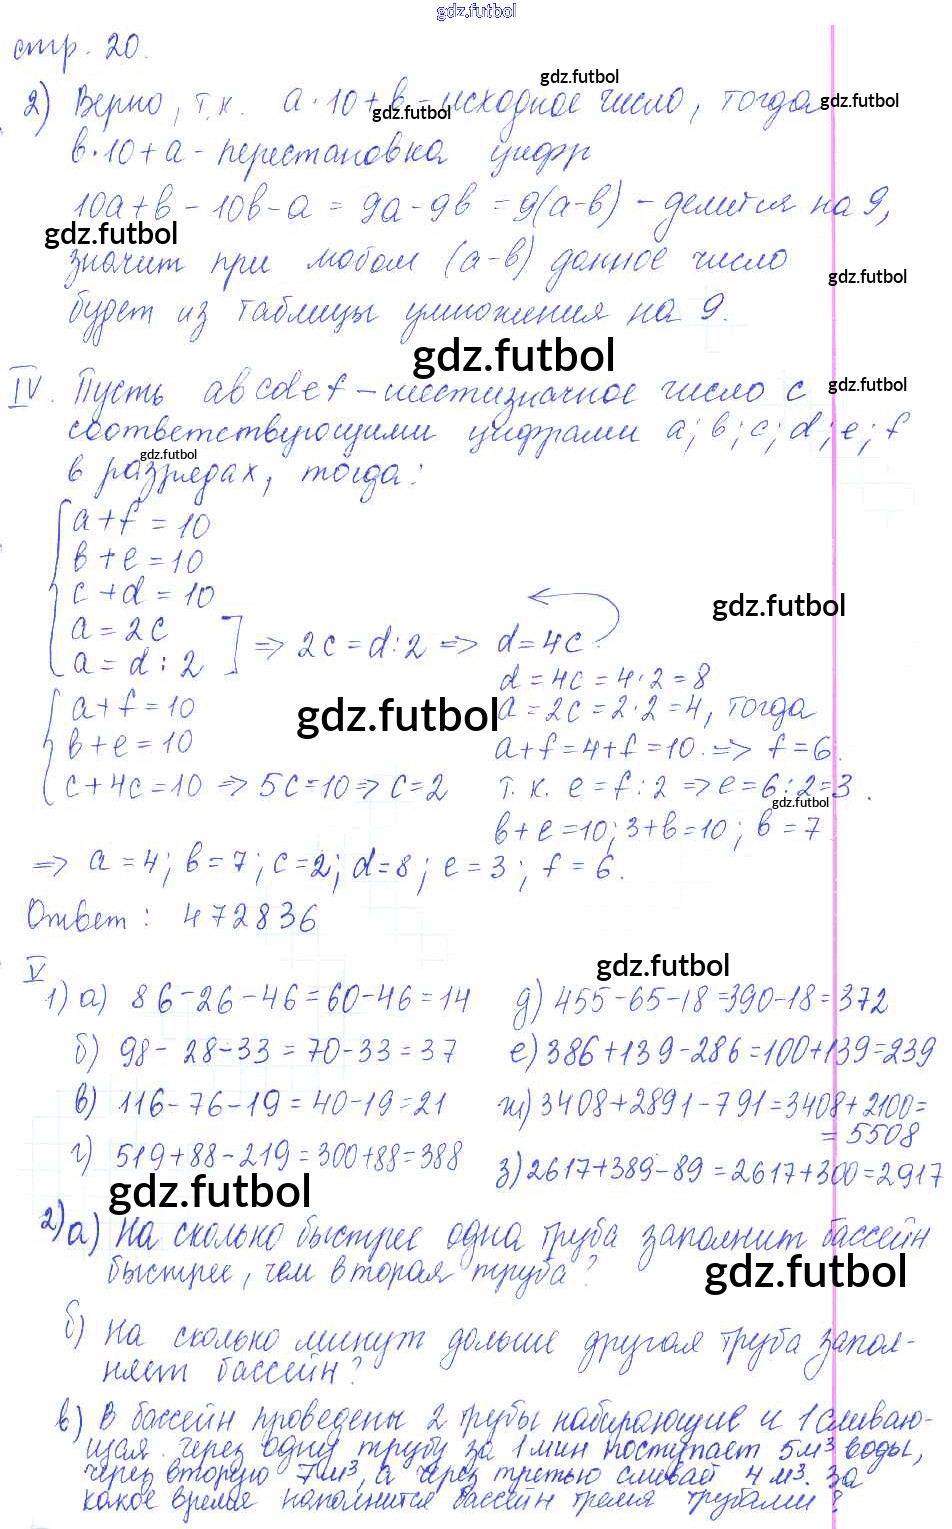 gdz.futbol
стр. 20.
gdz.futbol
2) Верно, т.к. a·10+b - исходное число, тогда
gdz.futbol gdz.futbol
b·10+a - перестановка цифр
10a+b-10b-a=9a-9b=9(a-b) - делится на 9,
gdz.futbol
значит при любом (a-b) данное число
gdz.futbol
будет из таблицы умножения на 9.
gdz.futbol
IV. Пусть abcdef - шестизначное число с
gdz.futbol
соответствующими цифрами a; b; c; d; e; f
gdz.futbol
в разрядах, тогда:
a+f=10
b+e=10
c+d=10
gdz.futbol
a=2c
a=d:2 ] => 2c=d:2 => d=4c
d=4c=4·2=8
a+f=10
gdz.futbol
a=2c=2·2=4, тогда
b+e=10
a+f=4+f=10. => f=6.
c+4c=10 => 5c=10 => c=2
т.к. e=f:2 => e=6:2=3
gdz.futbol
b+e=10; 3+b=10; b=7
=> a=4; b=7; c=2; d=8; e=3; f=6.
Ответ: 472836
V
gdz.futbol
1) а) 86-26-46=60-46=14
д) 455-65-18=390-18=372
б) 98-28-33=70-33=37
е) 386+139-286=100+139=239
в) 116-76-19=40-19=21
ж) 3408+2891-791=3408+2100=
=5508
г) 519+88-219=300+88=388
з) 2617+389-89=2617+300=2917
gdz.futbol
2) а) На сколько быстрее одна труба заполнит бассейн
быстрее, чем вторая труба?
gdz.futbol
б) На сколько минут дольше другая труба запол-
няет бассейн?
в) В бассейн проведены 2 трубы набирающие и 1 сливаю-
щая. Через одну трубу за 1 мин поступает 5м³ воды,
через вторую 7м³, а через третью сливает 4м³. За
какое время наполнится бассейн тремя трубами?